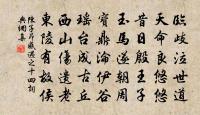 臨岐泣世道
天命良悠悠
昔日殷王子
玉馬遂朝周
寶鼎淪伊谷
瑶台成古丘
西山傷遺老
東陵有故侯
陳子昂感遇之十四詞
典網集